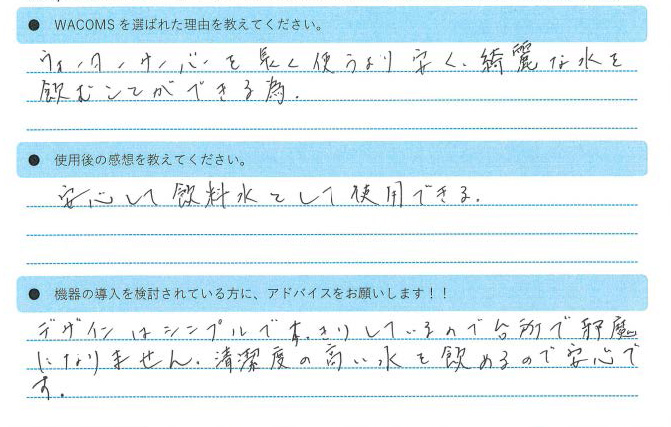 ● WACOMSを選ばれた理由を教えてください。
ウォーターサーバーを長く使うより安く、綺麗な水を
飲むことができる為.
● 使用後の感想を教えてください。
安心して飲料水として使用できる.
● 機器の導入を検討されている方に、アドバイスをお願いします！！
デザインはシンプルですっきりしているので台所で邪魔
になりません.清潔度の高い水を飲めるので安心で
す.